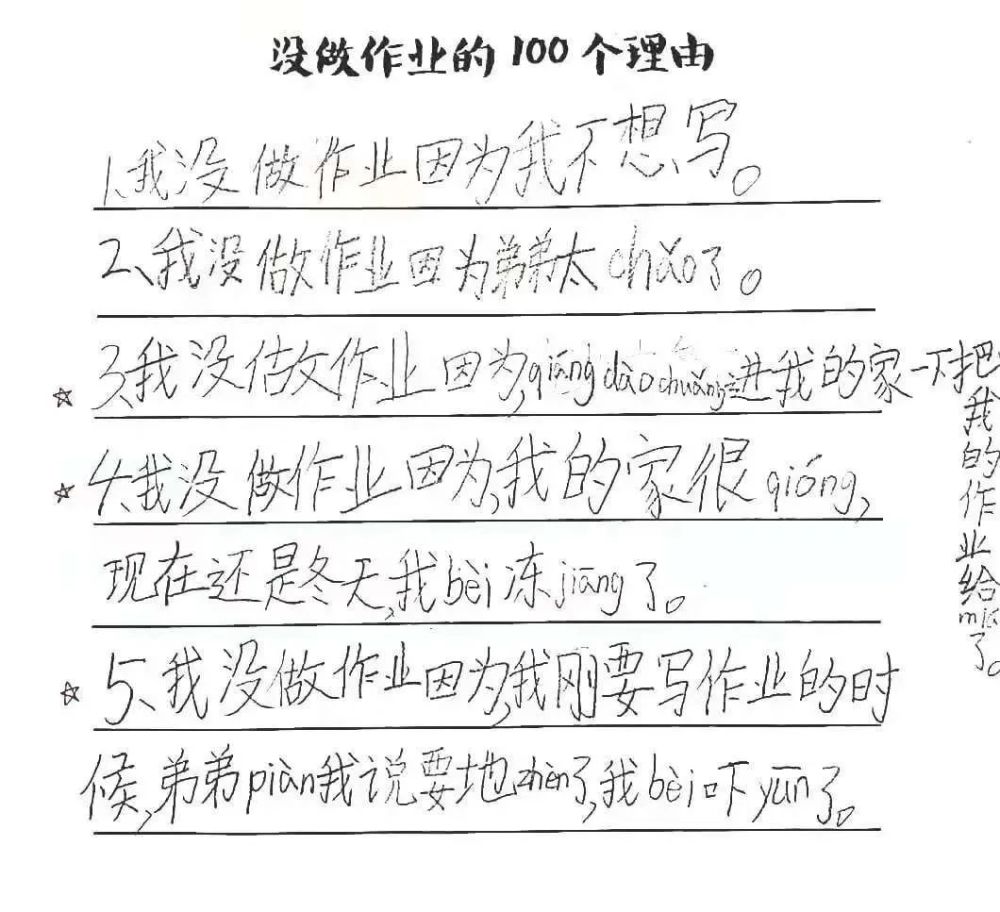 没做作业的100个理由
1、我没做作业因为我不想写。
2、我没做作业因为弟弟太chǎo了。
☆ 3、我没估文作业因为,qiáng dào chuǎng进我的家一下把
我的作业给
了。
☆ 4、我没做作业因为,我的家很qióng,
现在还是冬天,我bèi冻jiāng了。
☆ 5、我没做作业因为,我刚要写作业的时
候,弟弟piàn我说要地zhèn了,我bèi吓yūn了。